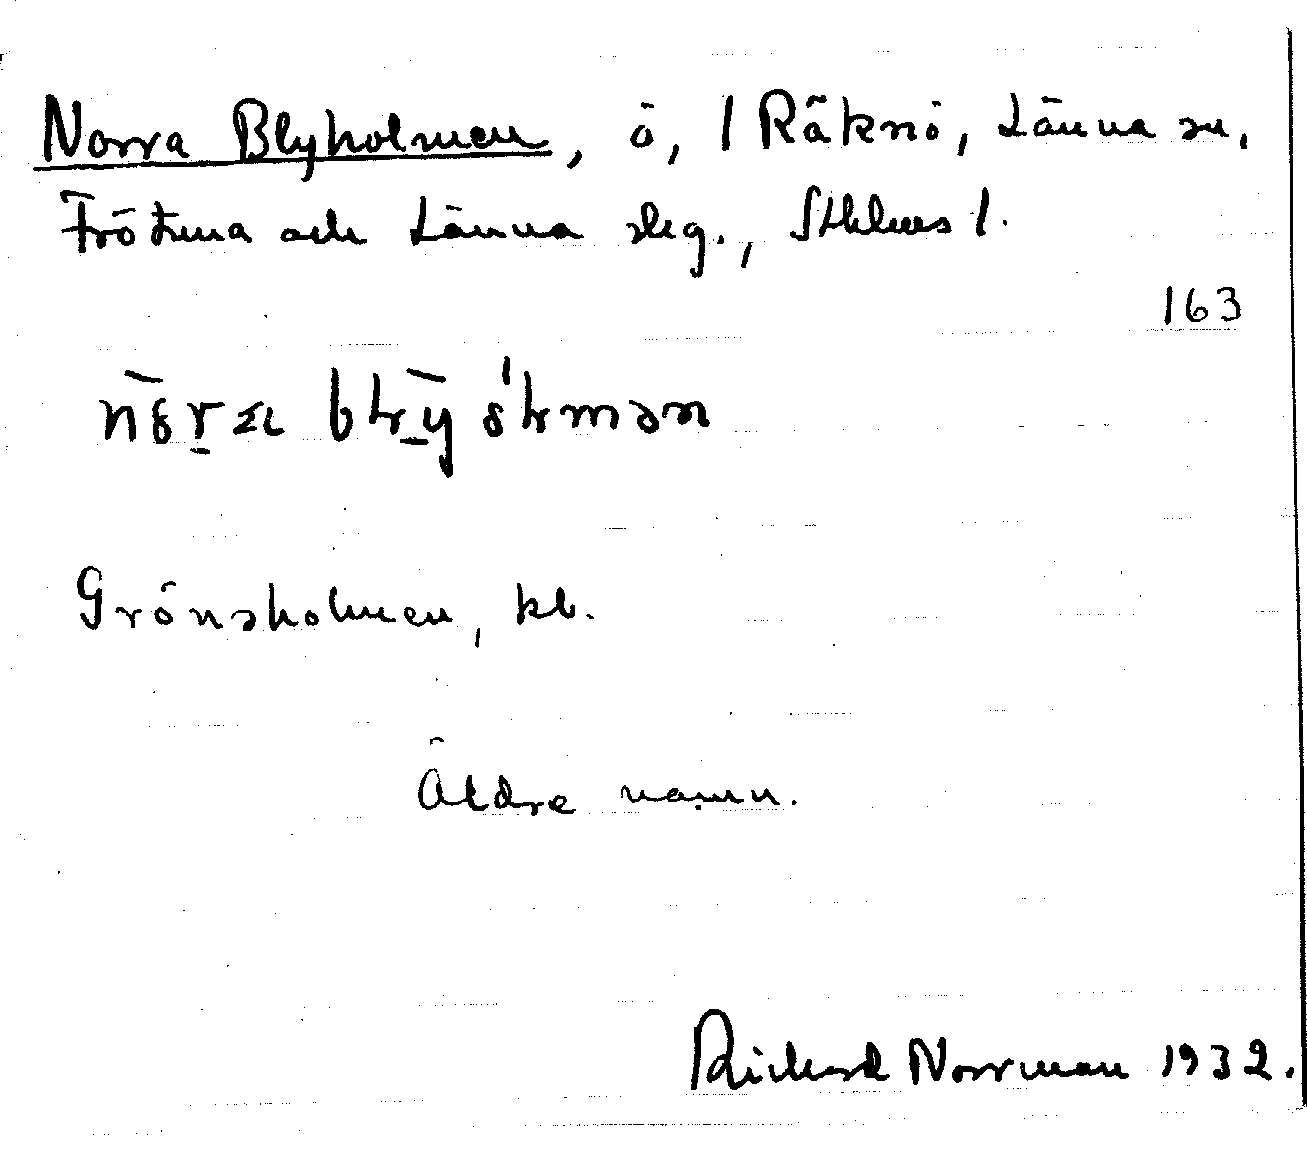 Norra Blyholmen, ö, 1 Räknö, Länna sn,
Frötuna och Länna skg., Sthlms l.
163
Grönsholmen, kb.
Äldre namn.
Rickard Norrman 1932.